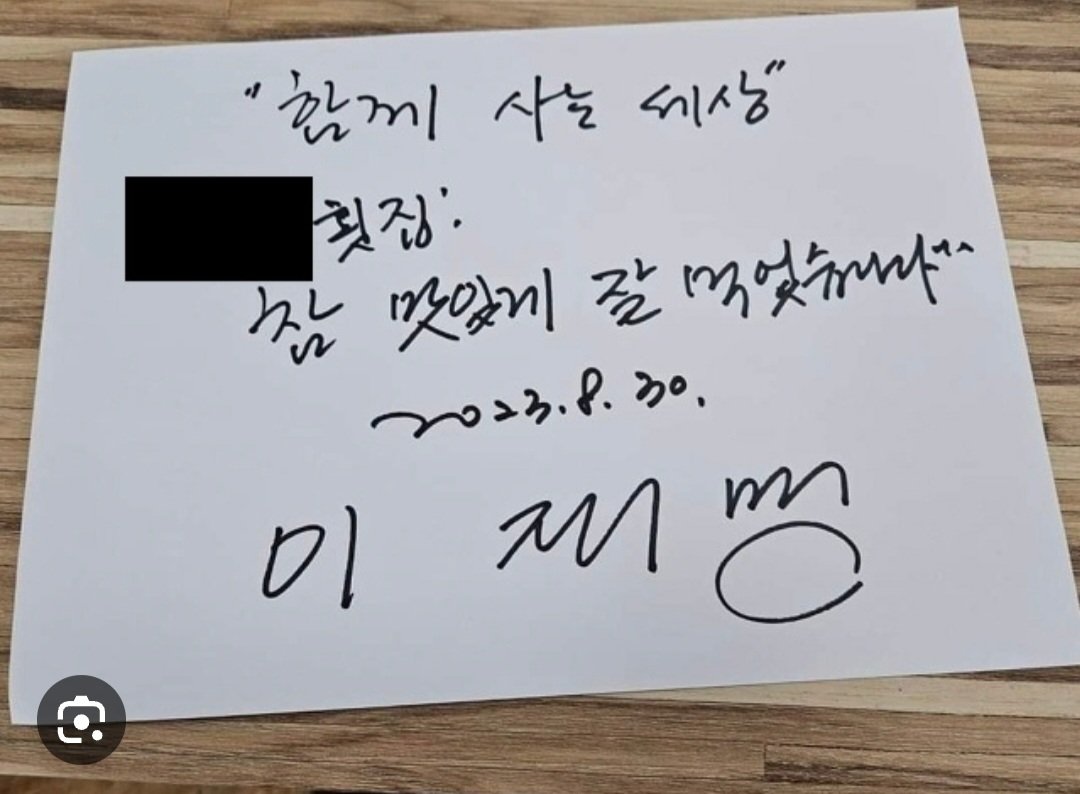 "함께 사는 세상"
횟집:
참 맛있게 잘 먹었습니다^^
2023. 8. 30.
이 재 명